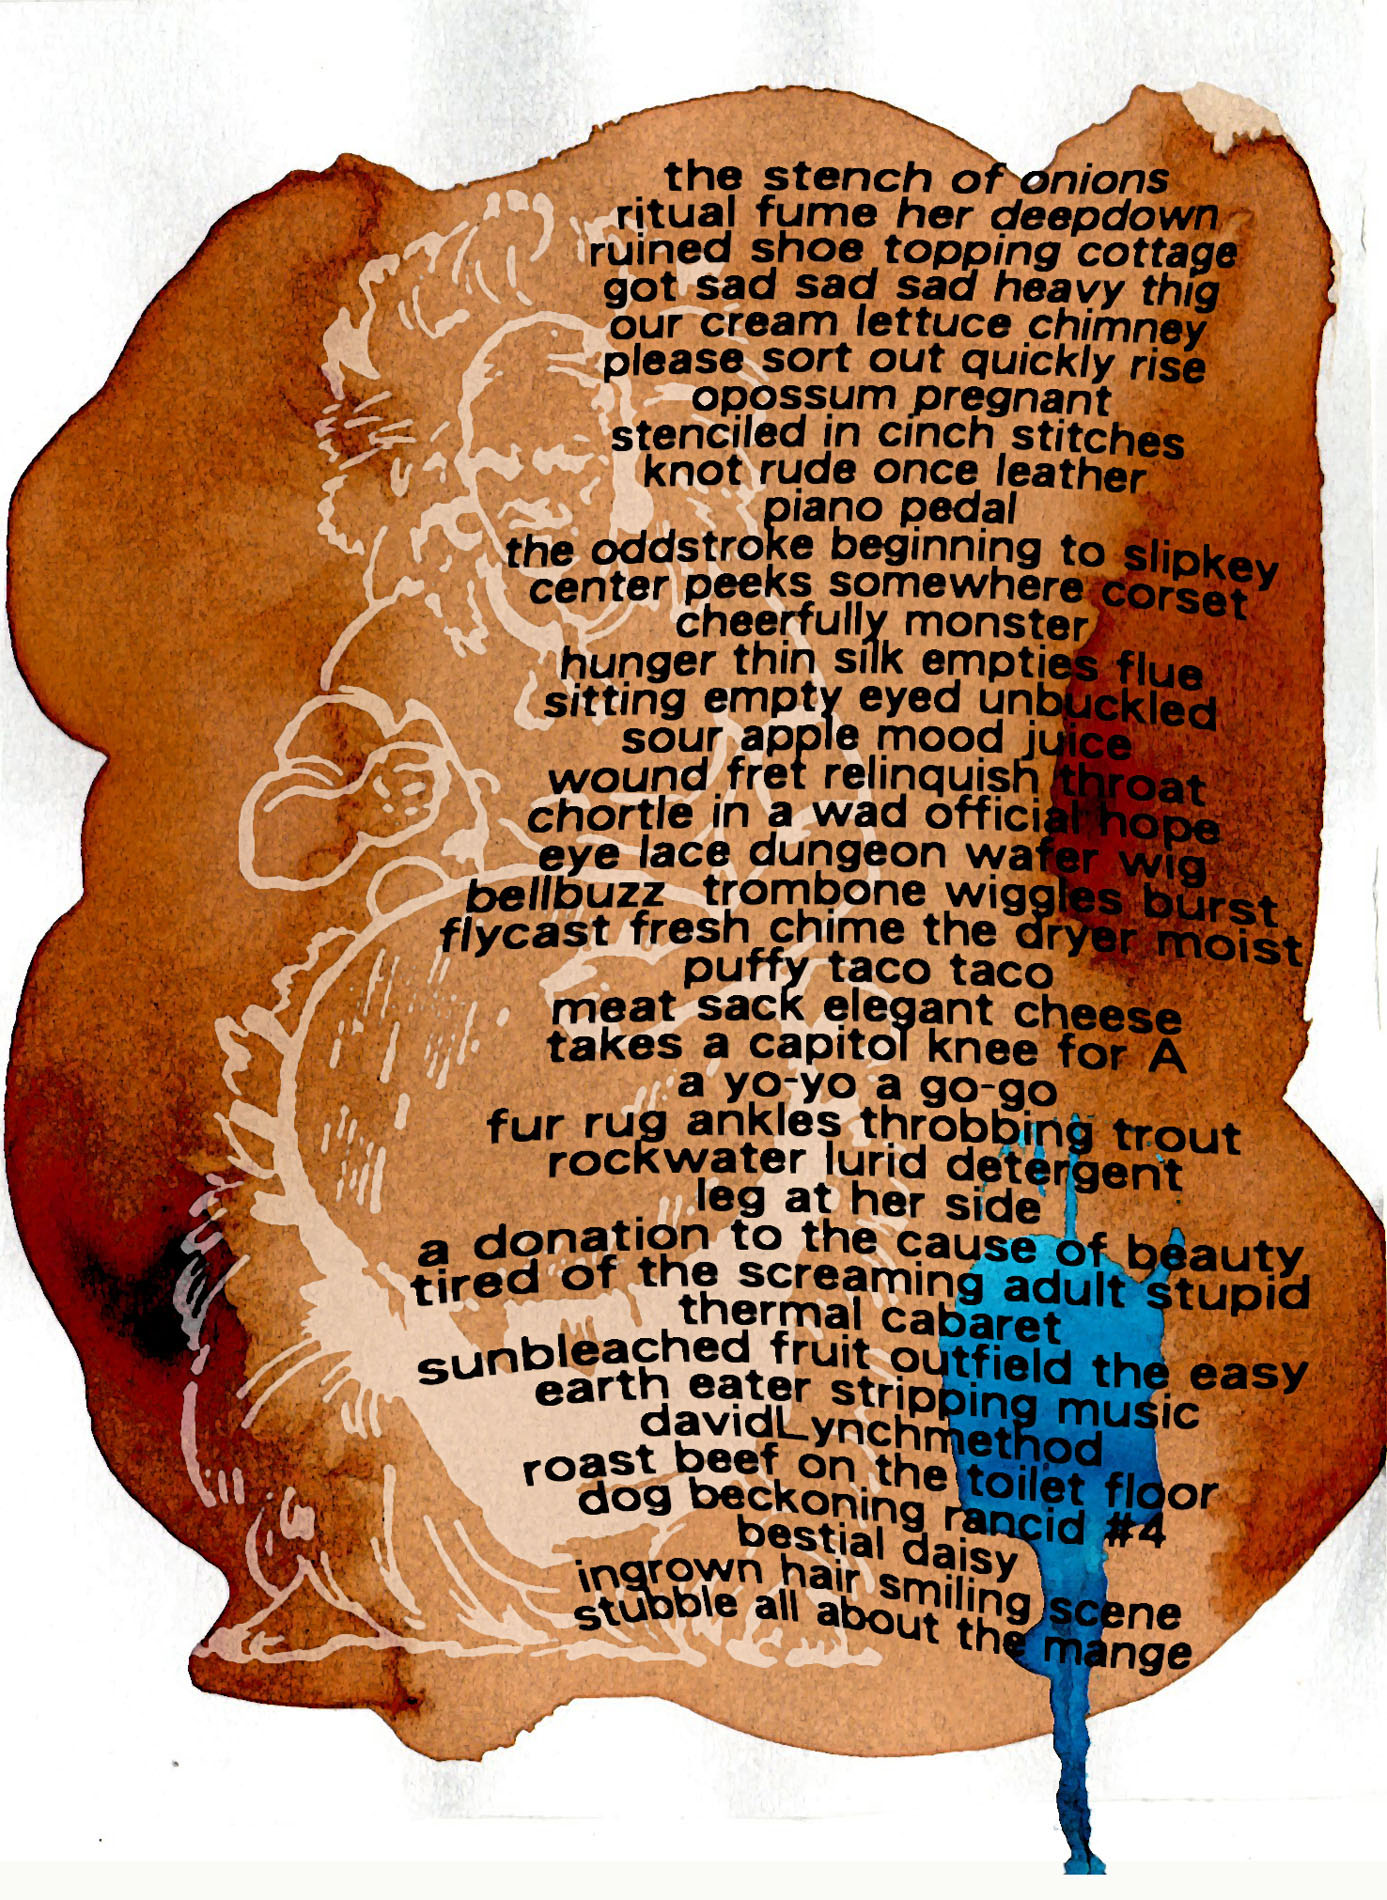 the stench of onions
ritual fume her deepdown
ruined shoe topping cottage
got sad sad sad heavy thig
our cream lettuce chimney
please sort out quickly rise
opossum pregnant
stenciled in cinch stitches
knot rude once leather
piano pedal
the oddstroke beginning to slipkey
center peeks somewhere corset
cheerfully monster
hunger thin silk empties flue
sitting empty eyed unbuckled
sour apple mood juice
wound fret relinquish throat
chortle in a wad official hope
eye lace dungeon wafer wig
bellbuzz trombone wiggles burst
flycast fresh chime the dryer moist
puffy taco taco
meat sack elegant cheese
takes a capitol knee for A
a yo-yo a go-go
fur rug ankles throbbing trout
rockwater lurid detergent
leg at her side
a donation to the cause of beauty
tired of the screaming adult stupid
thermal cabaret
sunbleached fruit outfield the easy
earth eater stripping music
davidLynchmethod
roast beef on the toilet floor
dog beckoning rancid #4
bestial daisy
ingrown hair smiling scene
stubble all about the mange